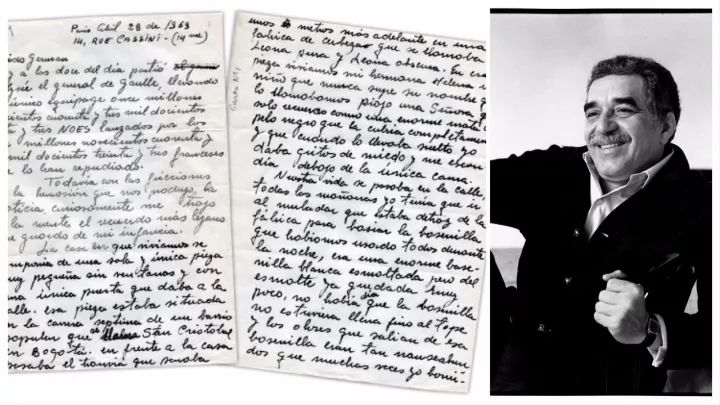 Paris Abril 28 de
14, RUE CASSINI - (14 me)
German
y a las doce del día partió
el general de Gaulle, llevando
equipage once millones
cuarenta y tres mil docientos
y tres NOES lanzados por los
millones novecientos cuarenta y
mil docientos treinta y tres franceses
lo han repudiado.
Todavia con las
la que nos produjo, la
oticia curiosamente me trajo
la mente el recuerdo más lejano
e guardo de mi infancia.
La casa en que viviamos se
componia de una sola y única pieza
muy pequeña sin ventanas y con
una única puerta que daba a la
calle. esa pieza estaba situada
en la carrera septima de un barrio
popular que se llama San Cristobal
en Bogotá. en frente a la casa
pasaba el tranvia que paraba
Carta Nº1
unos metros más adelante en una
fabrica de cerbeza que se llamaba
Leona pura y Leona obscura. En esa
pieza viviamos mi hermana Helena
niño que nunca supe su nombre
lo llamabamos piojo una Señora
solo recuerdo como una enorme mata
pelo negro que la cubria completamen
y que cuando lo llevaba suelto yo
daba gritos de miedo y me escon
dia debajo de la única cama.
Nuestra vida se pasaba en la calle,
todas las mañanas yo tenia que ir
al muladar que estaba detras de la
fábrica para basiar la basenilla
que habiamos usado todos durante
la noche, era una enorme base-
nilla blanca esmaltada pero del
esmalte ya quedaba muy
poco, no habia dia que la basenilla
no estuviera llena fino al tope
y los olores que salian de esa
basenilla eran tan nauseabun
dos que muchas veces yo bomi-